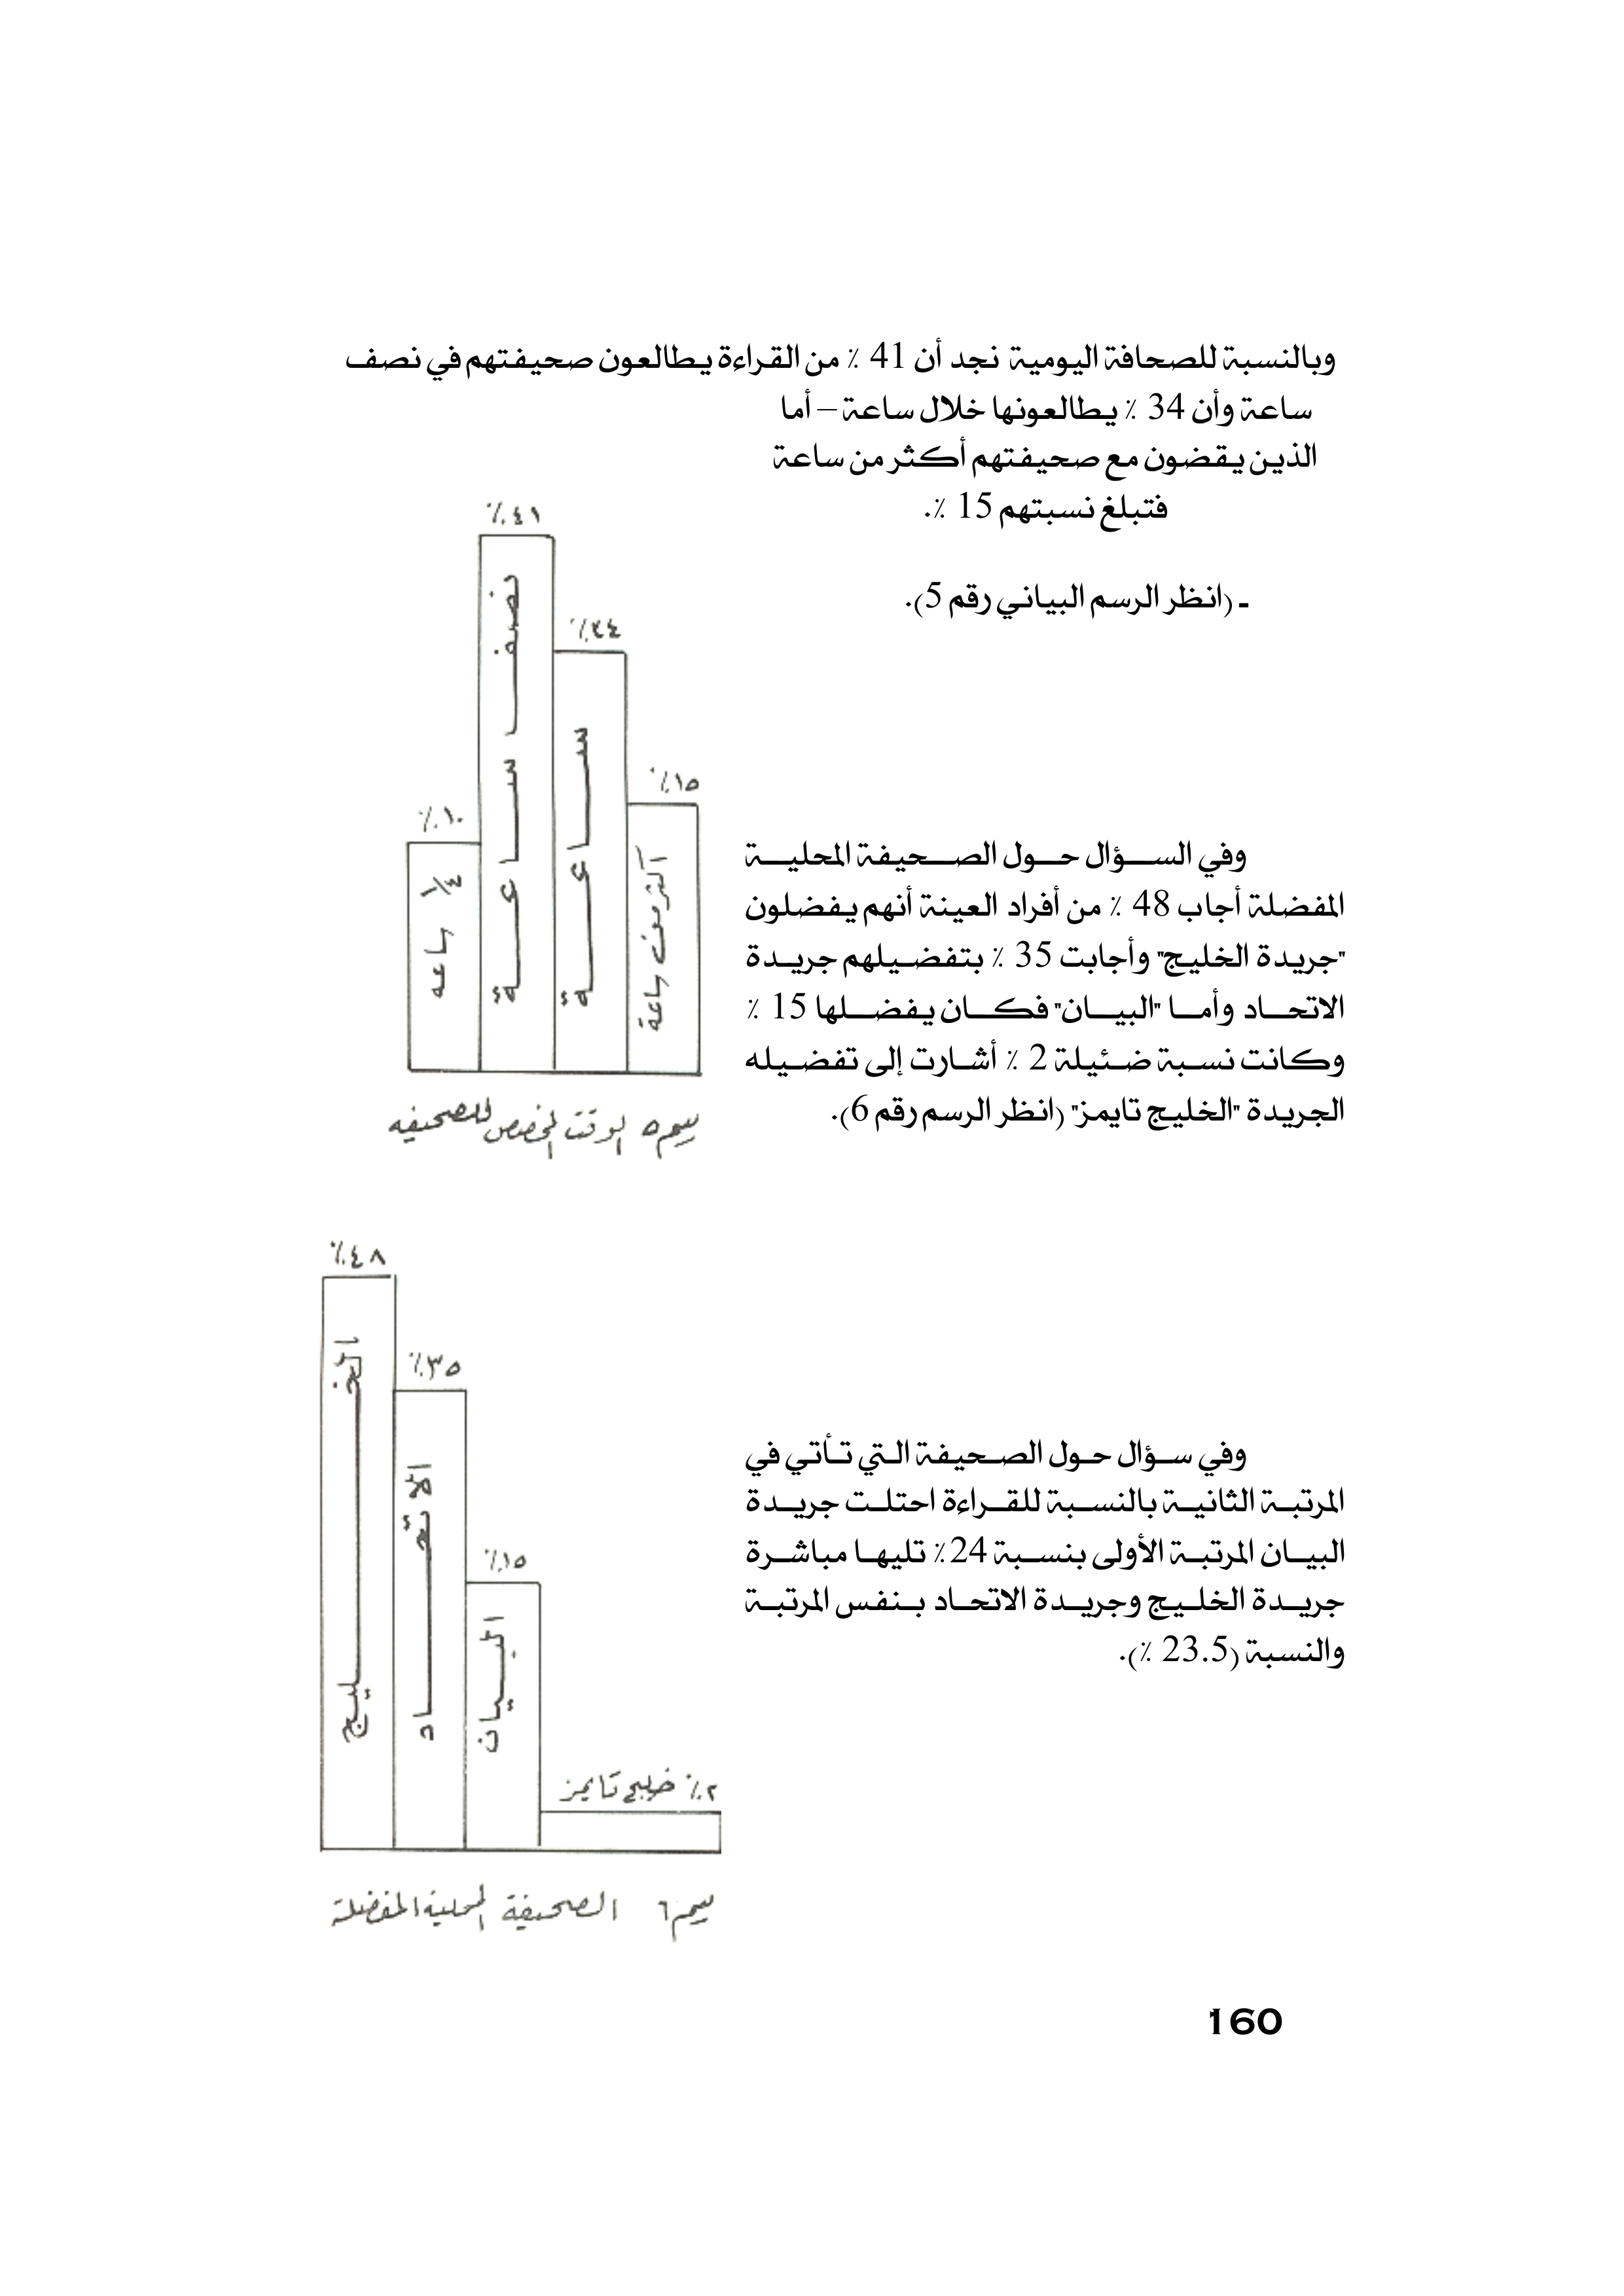 وبالنسبة للصحافة اليومية نجد أن 41 ٪ من القراءة يطالعون صحيفتهم في نصف
ساعة وأن 34 ٪ يطالعونها خلال ساعة – أما
الذين يقضون مع صحيفتهم أكثر من ساعة
فتبلغ نسبتهم 15 ٪.
ـ (انظر الرسم البياني رقم 5).
٤١٪
٣٤٪
١٥٪
١٠٪
١/٤ ساعه
نصف ساعة
ساعة
أكثر من ساعة
رسم ٥ الوقت المخصص للصحيفه
وفي السؤال حول الصحيفة المحلية
المفضلة أجاب 48 ٪ من أفراد العينة أنهم يفضلون
"جريدة الخليج" وأجابت 35 ٪ بتفضيلهم جريدة
الاتحاد وأما "البيان" فكان يفضلها 15 ٪
وكانت نسبة ضئيلة 2 ٪ أشارت إلى تفضيله
الجريدة "الخليج تايمز" (انظر الرسم رقم 6).
٤٨٪
٣٥٪
١٥٪
٢٪ خليج تايمز
الخليج
الاتحاد
البيان
رسم ٦ الصحيفة المحلية المفضلة
وفي سؤال حول الصحيفة التي تأتي في
المرتبة الثانية بالنسبة للقراءة احتلت جريدة
البيان المرتبة الأولى بنسبة 24٪ تليها مباشرة
جريدة الخليج وجريدة الاتحاد بنفس المرتبة
والنسبة (23.5 ٪).
160